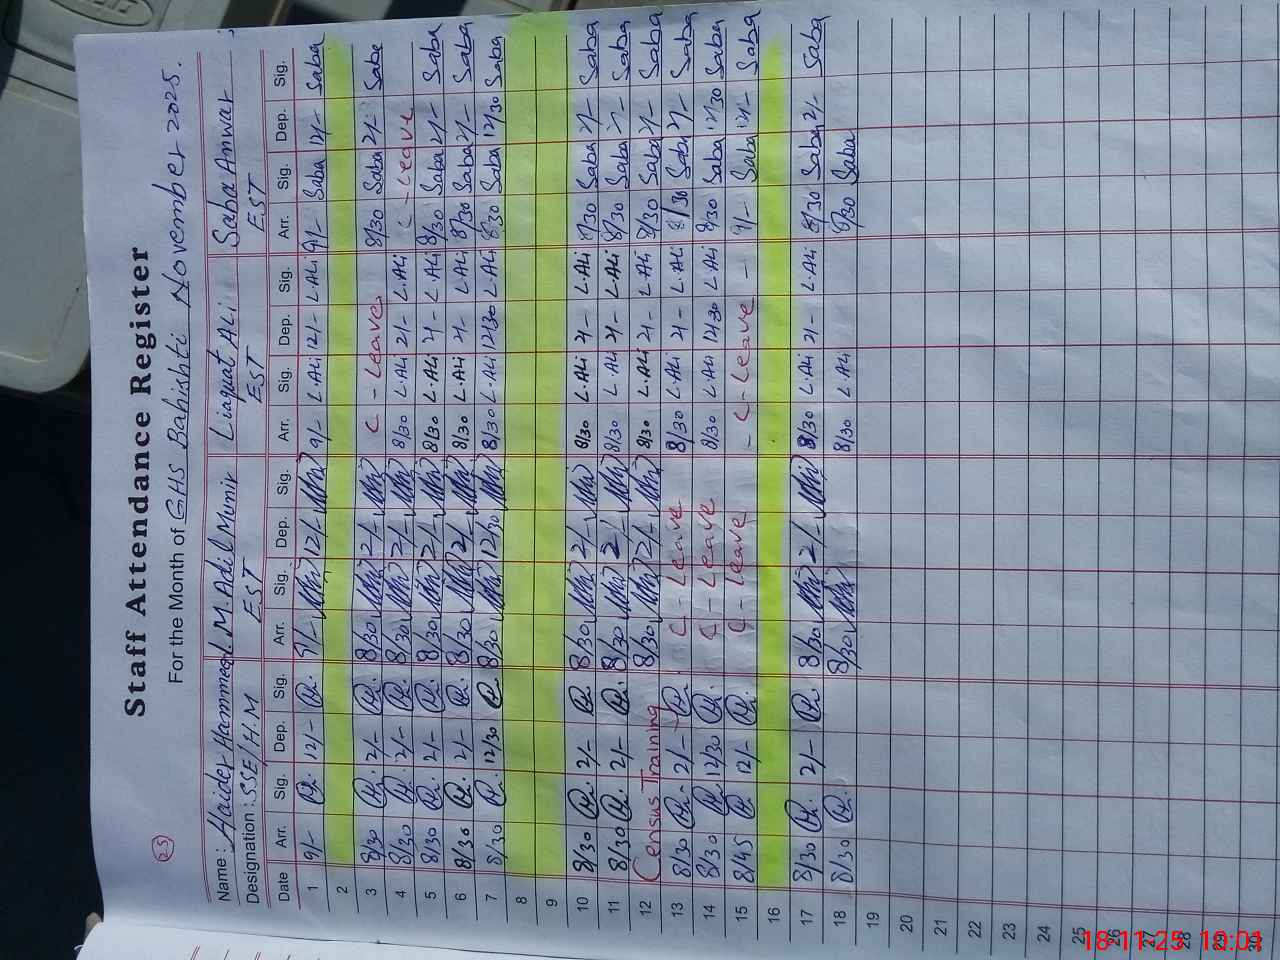 25
Staff Attendance Register
For the Month of GHS Bahishti November 2025.
Name: Haider Hammeed M. Adil Munir Liaquat Ali Saba Anwar
Designation: SSE/H.M EST EST EST
Date Arr. Sig. Dep. Sig. Arr. Sig. Dep. Sig. Arr. Sig. Dep. Sig. Arr. Sig. Dep. Sig.
1 9/- 12/- 9/- 12/- 9/- L.Ali 12/- L.Ali 9/- Saba 12/- Saba
2
3 8/30 2/- 8/30 2/- C - Leave 8/30 Saba 2/- Saba
4 8/30 2/- 8/30 2/- 8/30 L.Ali 2/- L.Ali C - Leave
5 8/30 2/- 8/30 2/- 8/30 L.Ali 2/- L.Ali 8/30 Saba 2/- Saba
6 8/30 2/- 8/30 2/- 8/30 L.Ali 2/- L.Ali 8/30 Saba 2/- Saba
7 8/30 12/30 8/30 12/30 8/30 L.Ali 12/30 L.Ali 8/30 Saba 12/30 Saba
8
9
10 8/30 2/- 8/30 2/- 8/30 L.Ali 2/- L.Ali 8/30 Saba 2/- Saba
11 8/30 2/- 8/30 2/- 8/30 L.Ali 2/- L.Ali 8/30 Saba 2/- Saba
12 Census Training 8/30 2/- 8/30 L.Ali 2/- L.Ali 8/30 Saba 2/- Saba
13 8/30 2/- C - Leave 8/30 L.Ali 2/- L.Ali 8/30 Saba 2/- Saba
14 8/30 12/30 C - Leave 8/30 L.Ali 12/30 L.Ali 8/30 Saba 12/30 Saba
15 8/45 12/- C - Leave - C - Leave - 9/- Saba 12/- Saba
16
17 8/30 2/- 8/30 2/- 8/30 L.Ali 2/- L.Ali 8/30 Saba 2/- Saba
18 8/30 8/30 8/30 L.Ali 8/30 Saba
19
20
21
22
23
24
25
26
27
28
29
30
18-11-25 10:01